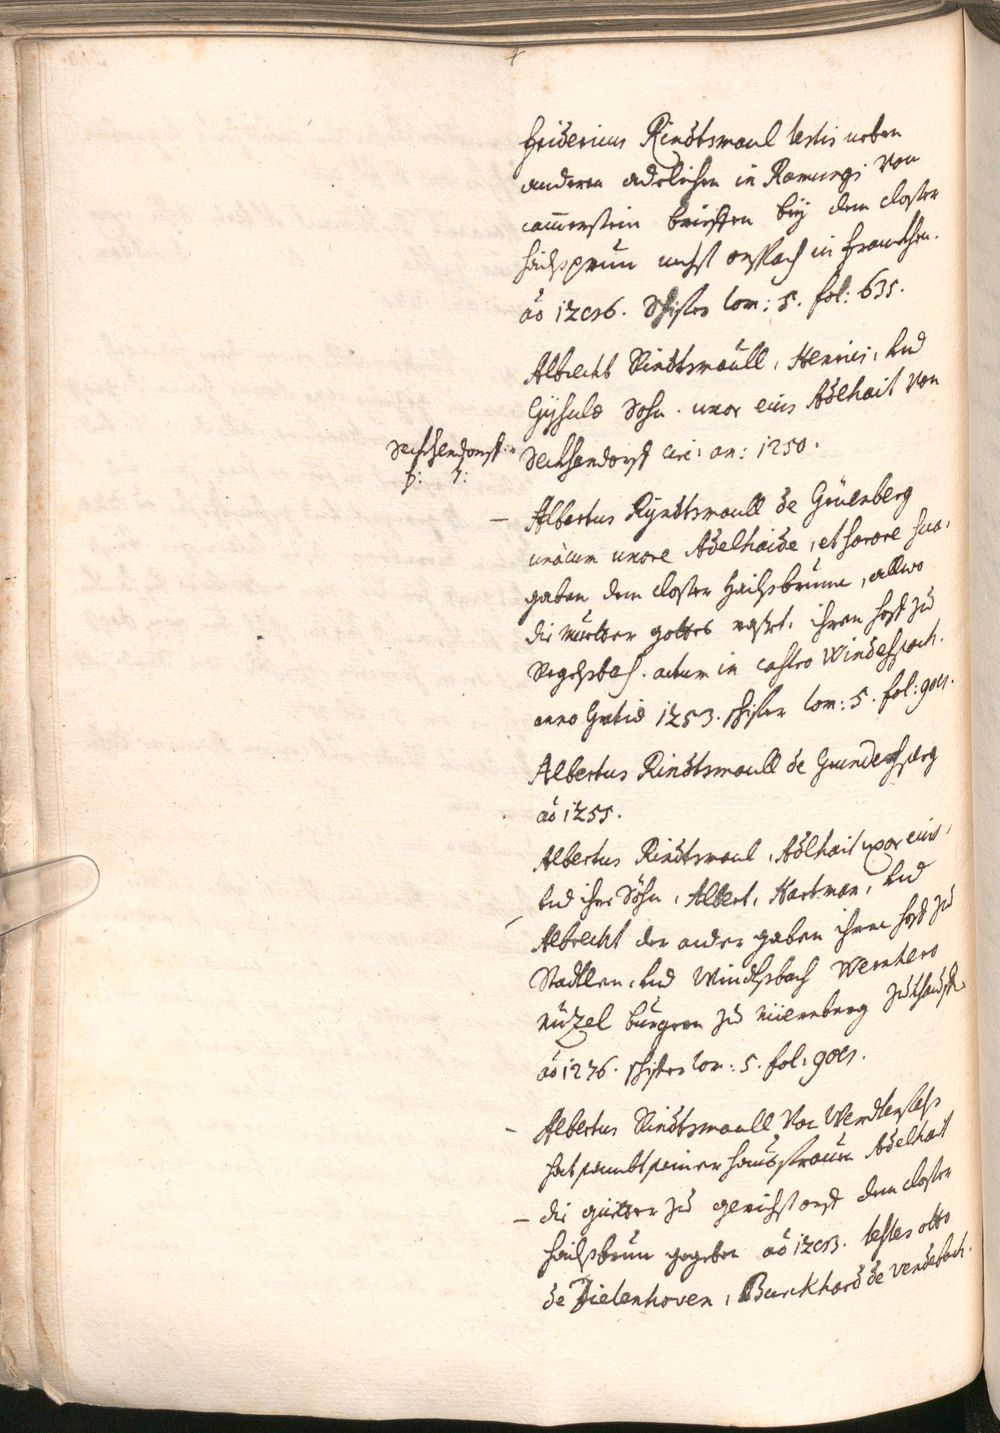 Fridericus Rindtsmaul testis neben
anderen adelichen in Ramungi von
cam̄erstein brieffen beÿ dem closter
Hailsprun negst onspach in Franckhen.
aō 1246. tom: 5. fol: 635.
Albrecht Rindtsmaull, Henrici, vnd
Gÿsulæ Sohn. uxor eius Adelhait von
Seckhendorff circ: an: 1250.
Seckhendorff
Albertus Rÿndtsmaull de Grüenberg
unàcum uxore Adelhaide, et sorore sua,
gaben dem closter Hailsbrunn, allwo
die muetter gottes rastet, ihren hoff zu
actum in castro Windespach.
anno Gratiæ 1253. tom: 5. fol:
Albertus Rindtsmaull de
aō 1255.
Albertus Rindtsmaul, Adlhait uxor eius,
vnd ihre Söhn, Albert, Hartman, vnd
Albrecht der ander gaben ihren hoff zu
Stadllen, vnd Windspach Wernhero
nüzel burgern zu Nüernberg zukhauffen
aō 1276. tom: 5. fol:
Albertus Rindtsmaull von
hat sambt seiner hausfrauen Adelhait
die güetter zu dem closter
Hailsbrun gegeben aō testes otto
de Dietenhoven, Burckhard de vendebach.